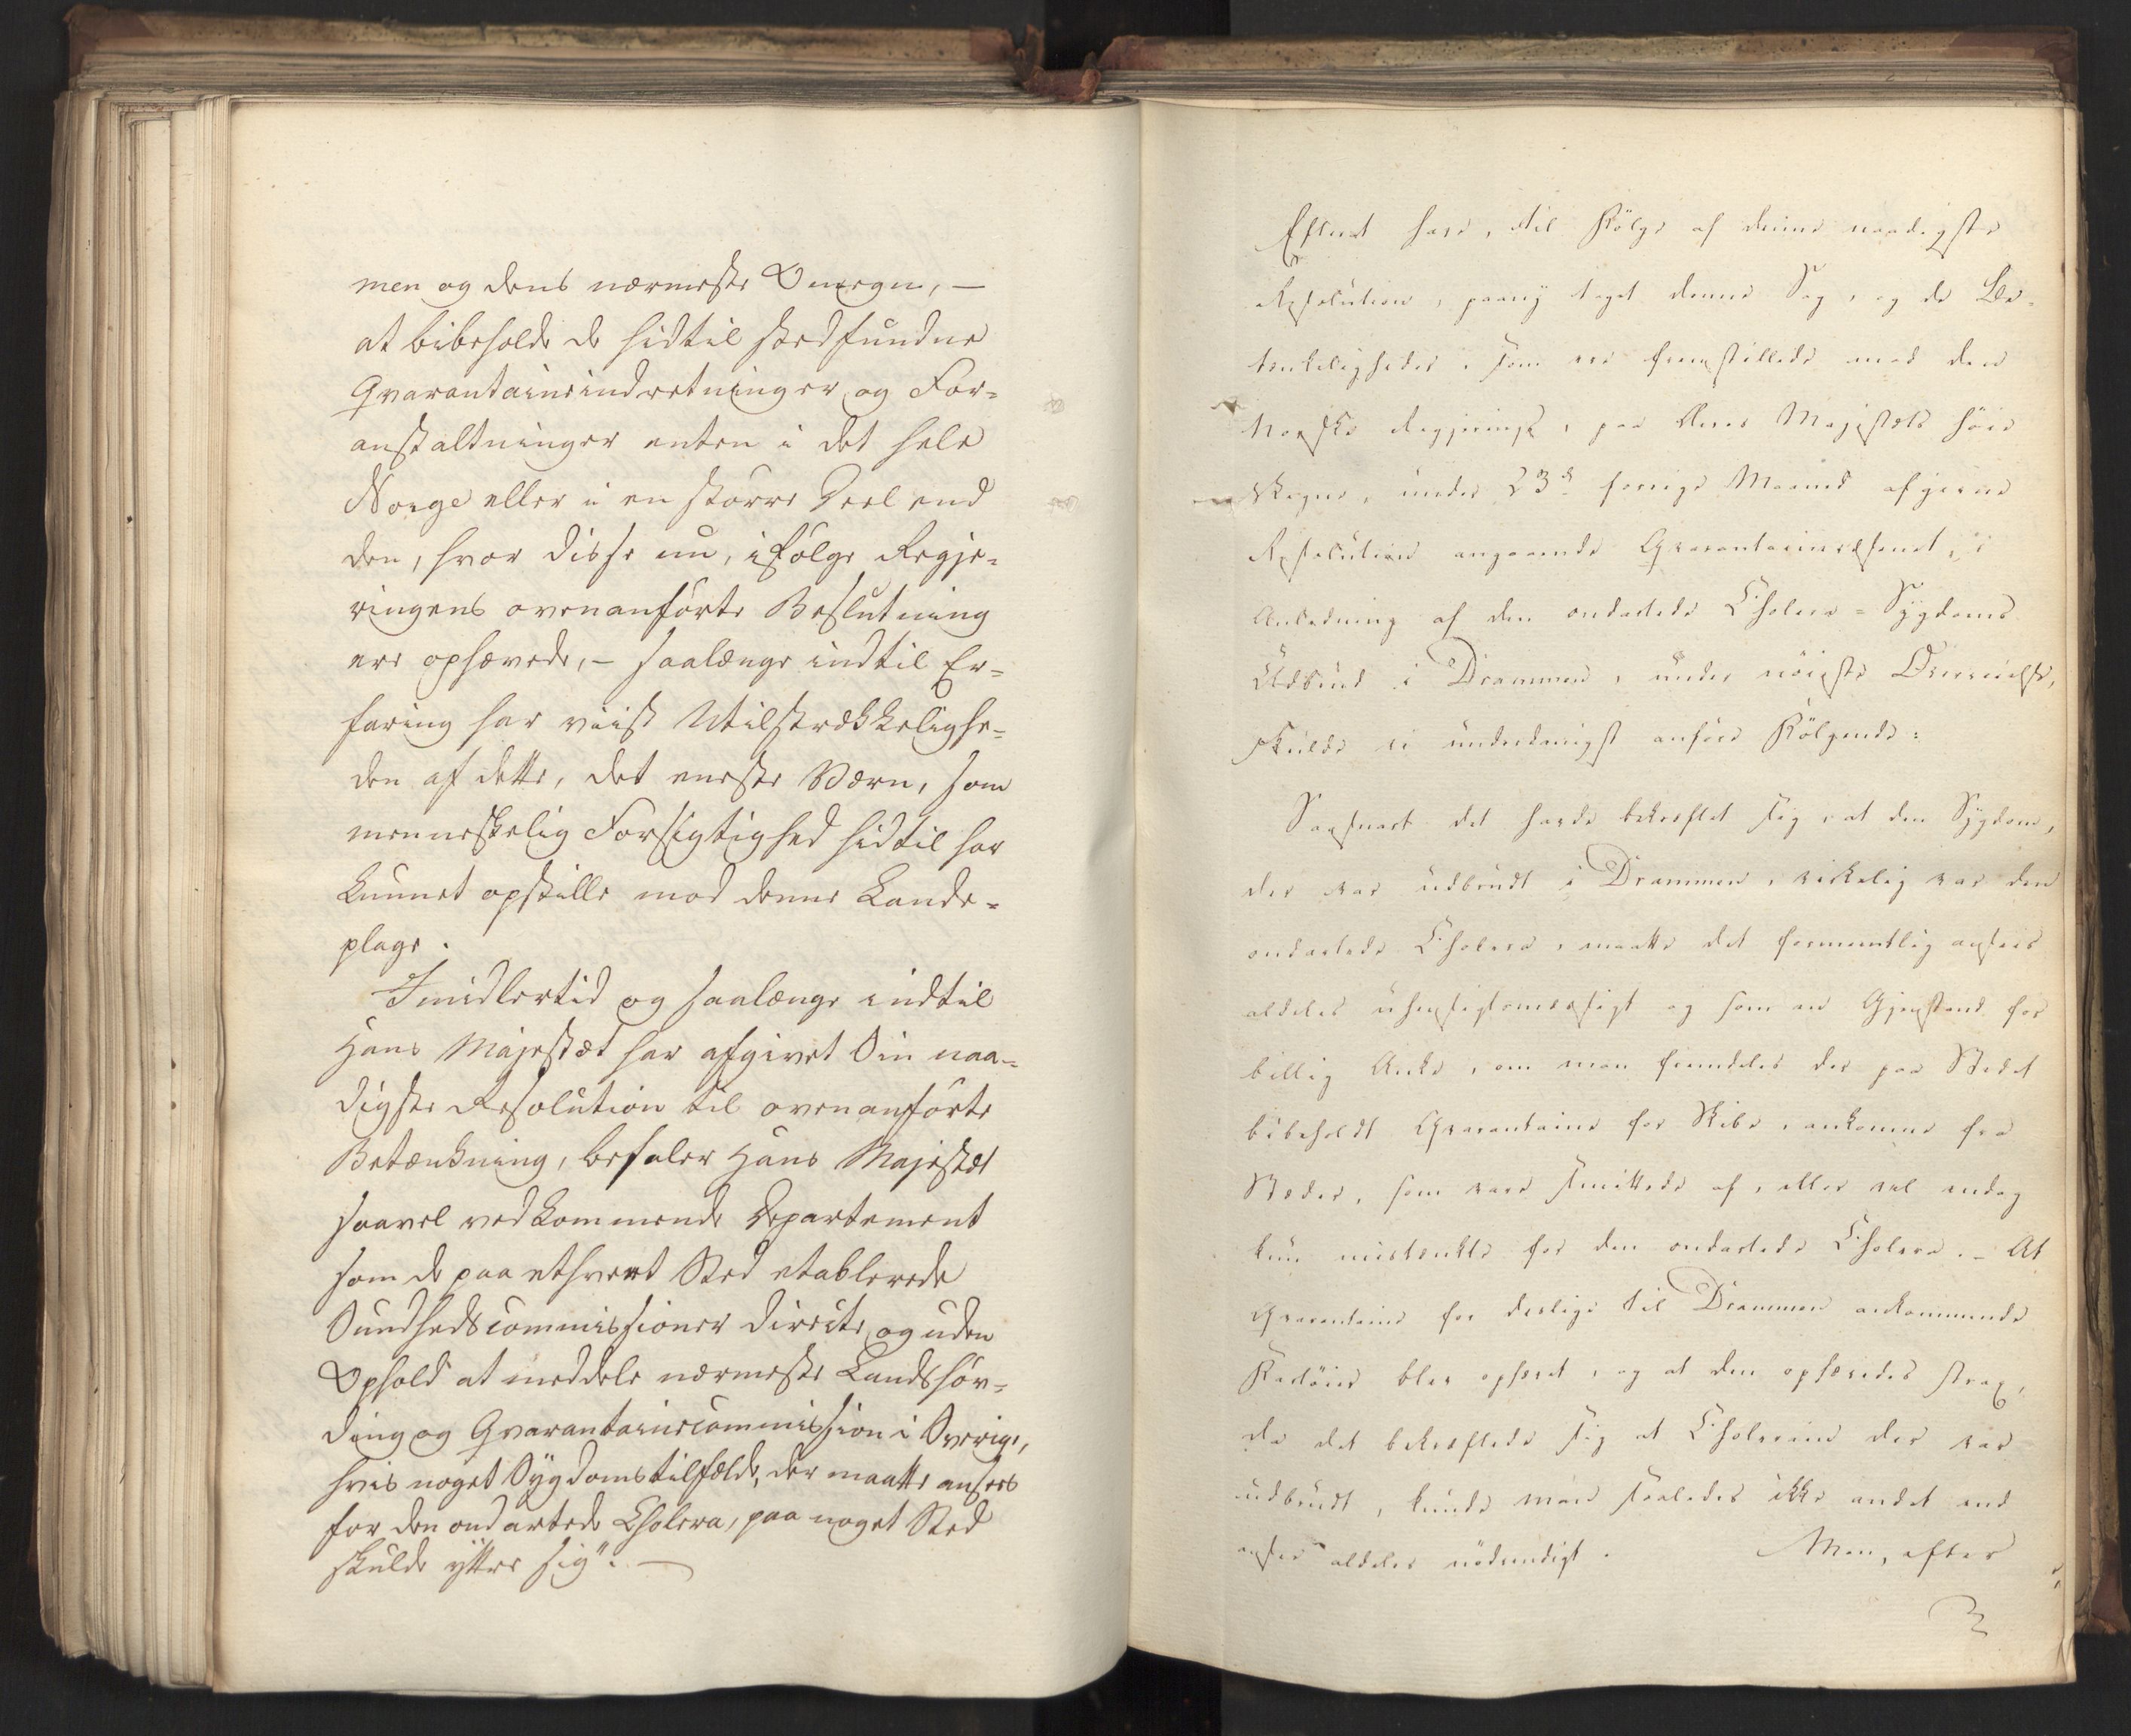 men og dens nærmeste Omegn, —
at bibeholde de hidtil stedfundne
Qvarantaineindretninger og For=
anstaltninger enten i det hele
Norge eller i en større Deel end
den, hvor disse nu, ifølge Regje=
ringens ovenanførte Beslutning
ere ophævede, — saalænge indtil Er=
faring har viist Utilstrækkelighe=
den af dette, det eneste Værn, som
menneskelig Forsigtighed hidtil har
kunnet opstille mod denne Lande=
plage.
Imidlertid og saalænge indtil
Hans Majestæt har afgivet Sin naa=
digste Resolution til ovenanførte
Betænkning, befaler Hans Majestæt
saavel vedkommende Departement
som de paa ethvert Sted etablerede
Sundhedscommissioner directe og uden
Ophold at meddele nærmeste Landshöv=
ding og Qvarantainecommission i Sverige,
hvis noget Sygdomstilfælde, der maatte ansees
for den ondartede Cholera, paa noget Sted
skulde yttre sig". —
Efterat have, til Fölge af denne naadigste
Resolution, paany taget denne Sag, og de Be=
tænkeligheder, som ere fremstillede mod den
Norske Regjerings, paa Deres Majestæts höie
Vegne, under 23d forrige Maaned afgivne
Resolution angaaende Qvarantainevæsenet, i
Anledning af den ondartede Cholera=Sygdoms
Udbrud i Drammen, under nöieste Overveielse,
skulde vi underdanigst anföre Fölgende:
Saasnart det havde bekræftet sig, at den Sygdom,
der var udbrudt i Drammen, virkelig var den
ondartede Cholera, maatte det formentlig ansees
aldeles uhensigtsmæssigt og som en Gjenstand for
billig Anke, om man fremdeles der paa Stedet
bibeholdt Qvarantaine for Skibe, ankomne fra
Steder, som vare smittede af, eller vel endog
kun mistænkte for den ondartede Cholera. – At
Qvarantaine for deslige til Drammen ankommende
Fartöier blev ophævet, og at den ophævedes strax,
da det bekræftede sig at Choleraen der var
udbrudt, kunde man saaledes ikke andet end
ansee aldeles nödvendigt. Men, efter